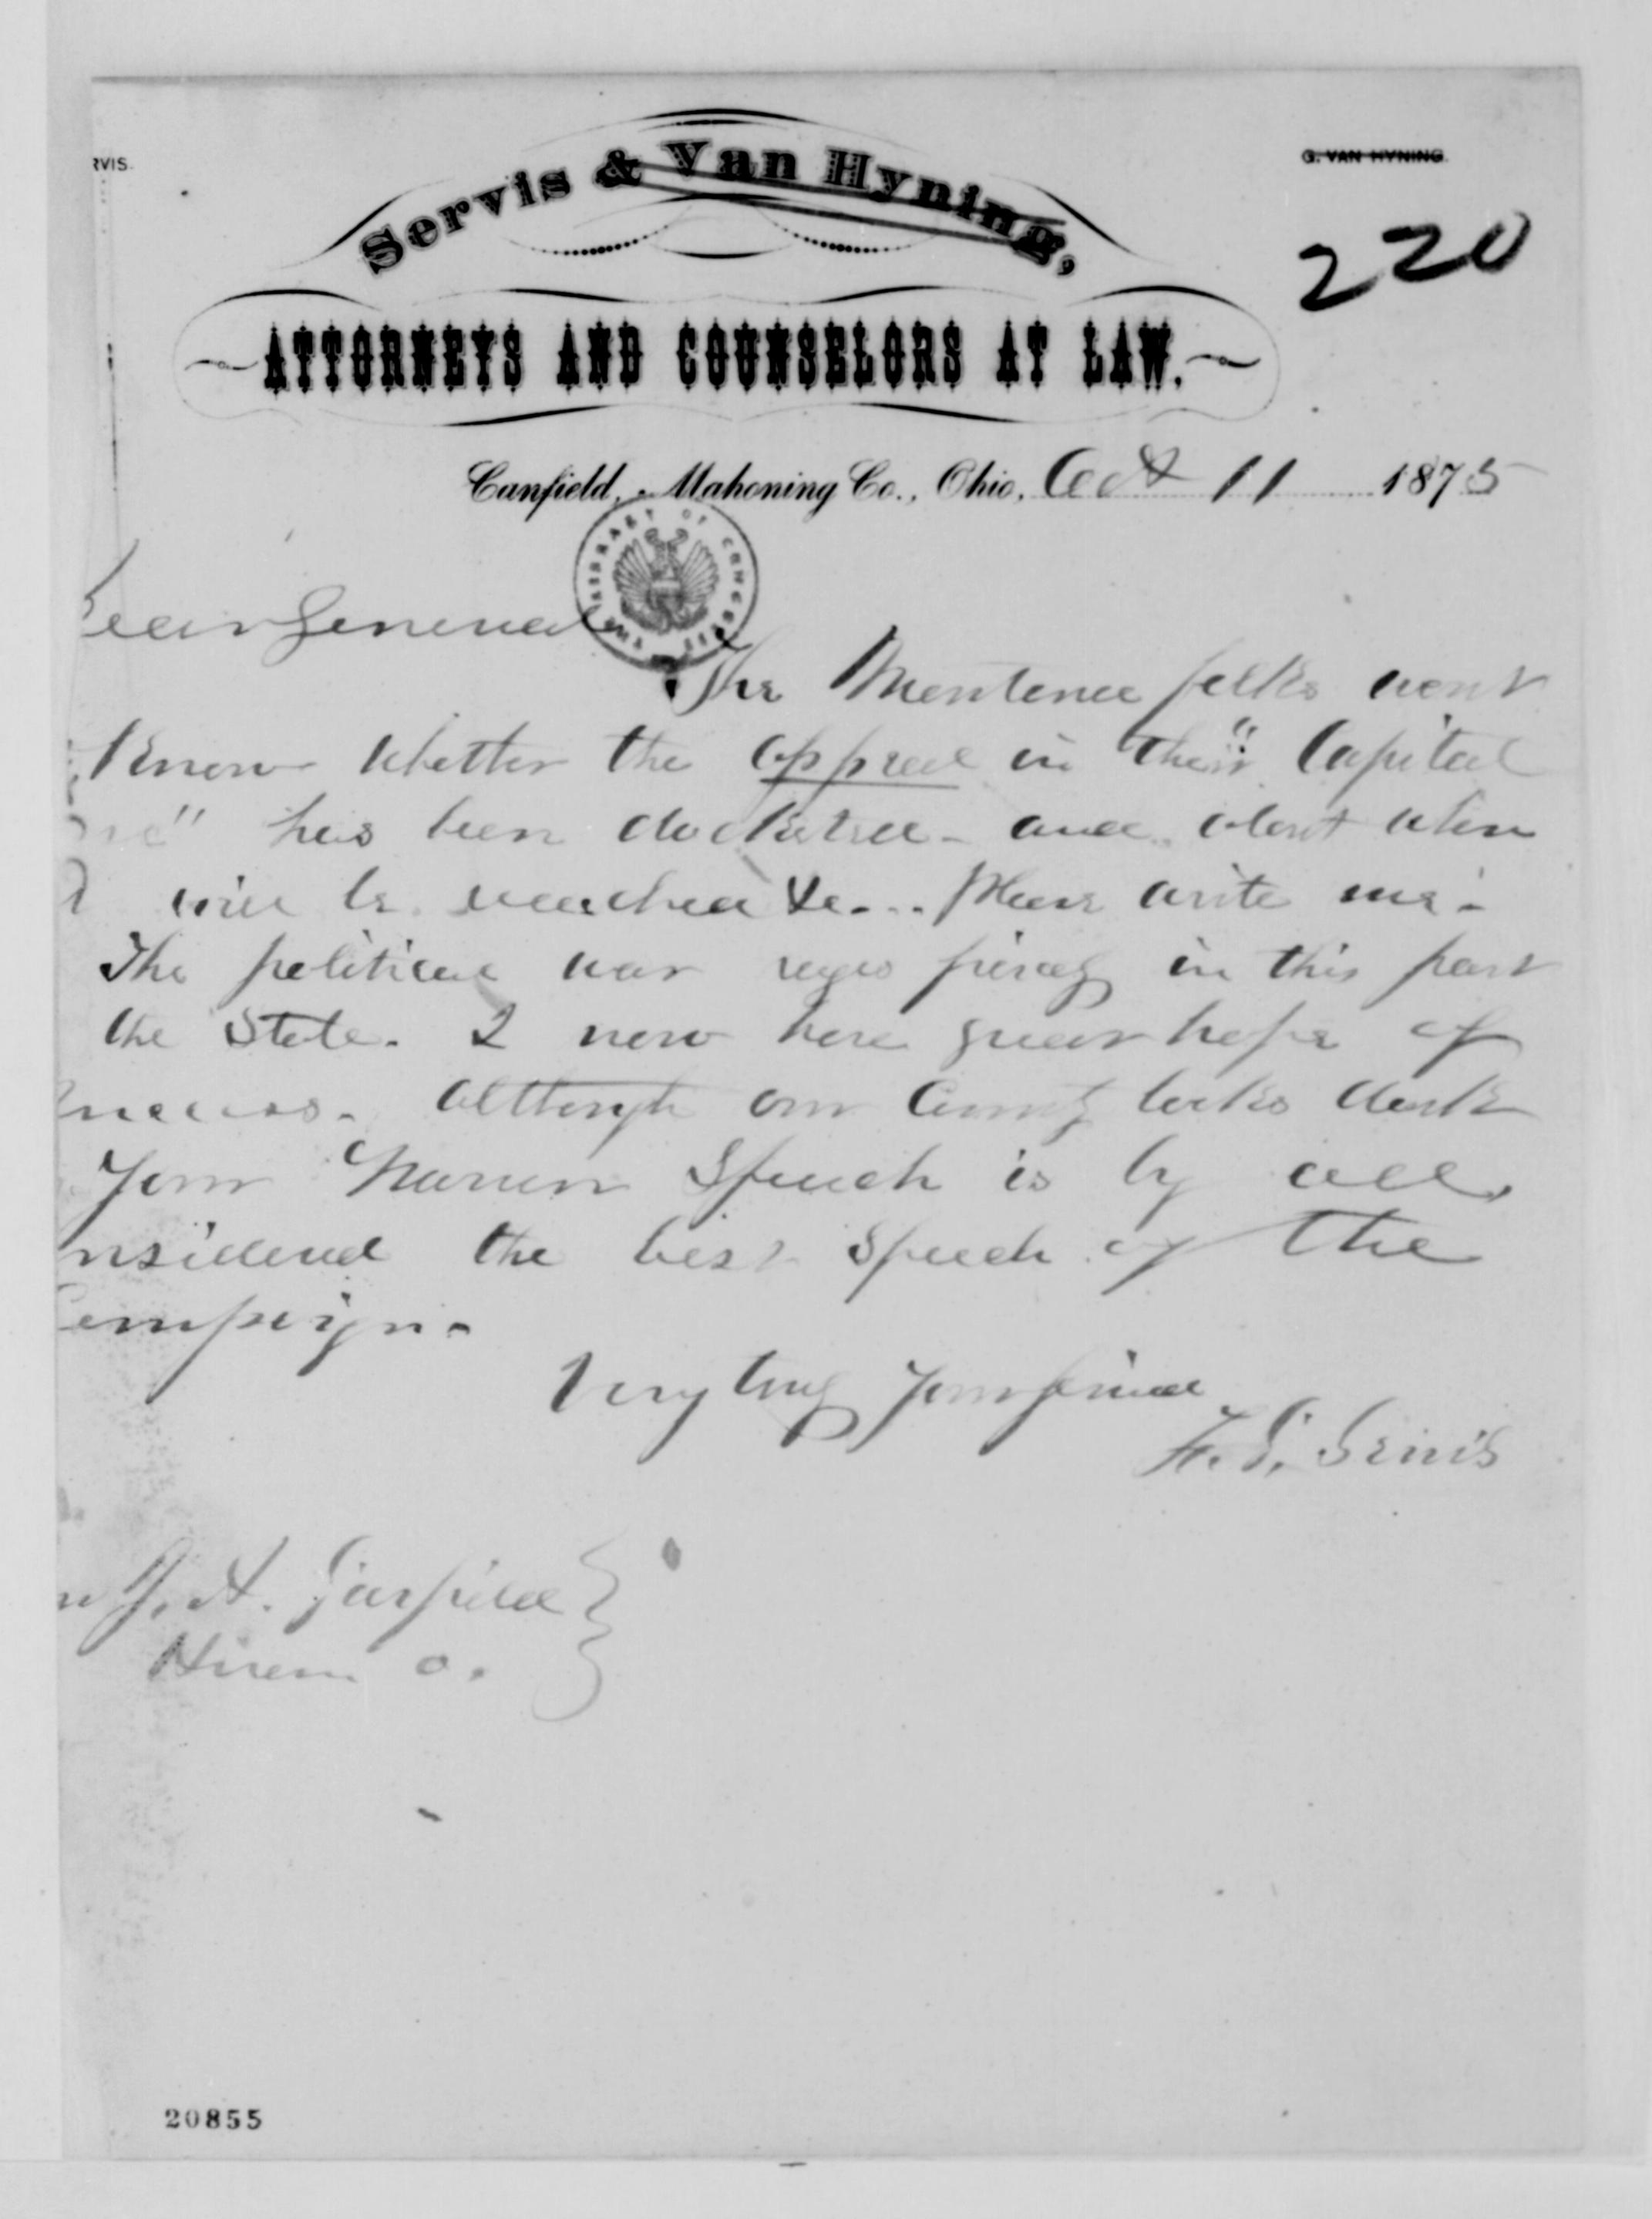 RVIS.
G. VAN HYNING.
Servis & Van Hyning,
220
ATTORNEYS AND COUNSELORS AT LAW.
Canfield, Mahoning Co., Ohio, Oct 11 1875
Dear General
THE LIBRARY OF CONGRESS
The Montana folks want
Know whether the appeal in their "Capital
" has been docketed - and about when
will be reached &c... Please write me -
The political war rages fiercely in this part
the State. I now have great hope of
success. Although our County looks dark
Your Warren Speech is by all
nsidered the best speech of the
Campaign.
Very truly your friend
F. G. Servis
n J. A. Garfield
Hiram O.
20855